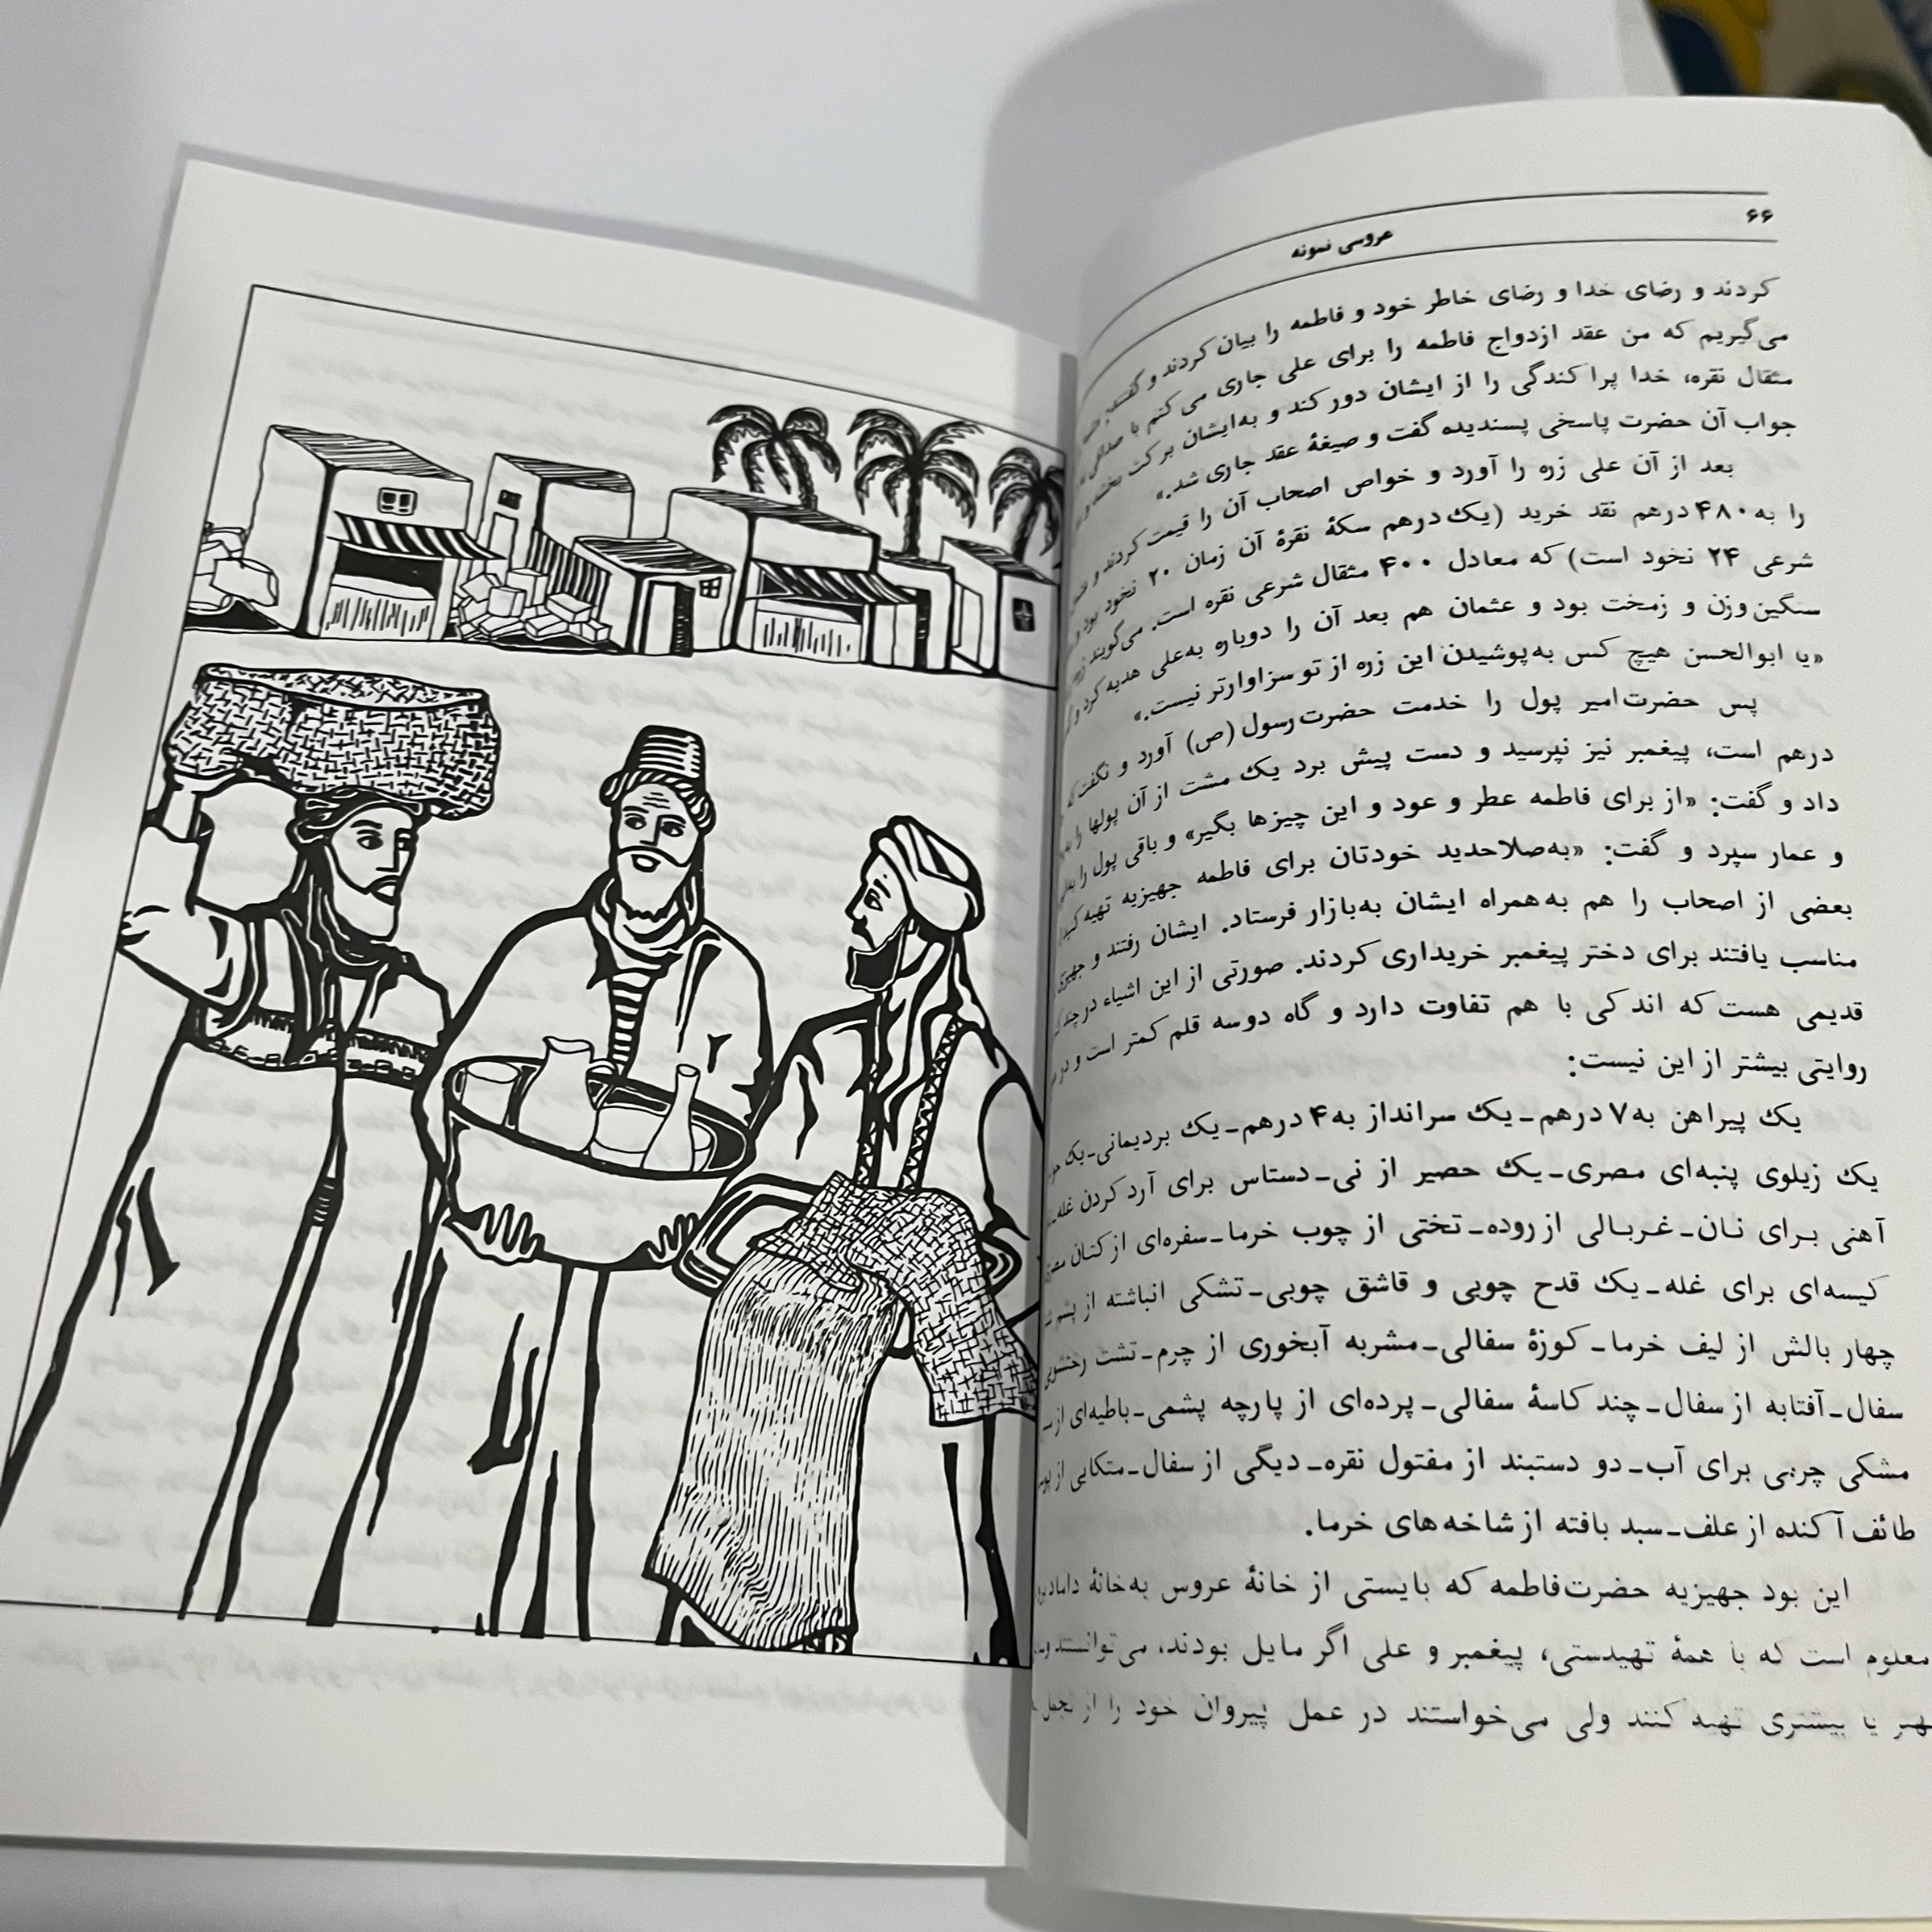 ۶۶
عروسی نمونه
کردند و رضای خدا و رضای خاطر خود و فاطمه را بیان کردند و گفتند
می‌گیریم که من عقد ازدواج فاطمه را برای علی جاری می‌کنم با صداق
مثقال نقره، خدا پراکندگی را از ایشان دور کند و به‌ایشان برکت بخشد و
جواب آن حضرت پاسخی پسندیده گفت و صیغهٔ عقد جاری شد.»
بعد از آن علی زره را آورد و خواص اصحاب آن را قیمت کردند و
را به ۴۸۰ درهم نقد خرید (یک درهم سکهٔ نقرهٔ آن زمان ۲۰ نخود بود و
شرعی ۲۴ نخود است) که معادل ۴۰۰ مثقال شرعی نقره است. می‌گویند زره
سنگین‌وزن و زمخت بود و عثمان هم بعد آن را دوباره به‌علی هدیه کرد و
«یا ابوالحسن هیچ کس به‌پوشیدن این زره از تو سزاوارتر نیست.»
پس حضرت‌امیر پول را خدمت حضرت‌رسول (ص) آورد و نگفت که
درهم است، پیغمبر نیز نپرسید و دست پیش برد یک مشت از آن پولها را
داد و گفت: «از برای فاطمه عطر و عود و این چیزها بگیر» و باقی پول را
و عمار سپرد و گفت: «به‌صلاحدید خودتان برای فاطمه جهیزیه تهیه کنید
بعضی از اصحاب را هم به‌همراه ایشان به‌بازار فرستاد. ایشان رفتند و
مناسب یافتند برای دختر پیغمبر خریداری کردند. صورتی از این اشیاء در چند
قدیمی هست که اندکی با هم تفاوت دارد و گاه دوسه قلم کمتر است و در
روایتی بیشتر از این نیست:
یک پیراهن به ۷ درهم ـ یک سرانداز به ۴ درهم ـ یک بردیمانی ـ یک
یک زیلوی پنبه‌ای مصری ـ یک حصیر از نی ـ دستاس برای آرد کردن غله ـ
آهنی برای نان ـ غربالی از روده ـ تختی از چوب خرما ـ سفره‌ای از کتان
کیسه‌ای برای غله ـ یک قدح چوبی و قاشق چوبی ـ تشکی انباشته از پشم
چهار بالش از لیف خرما ـ کوزهٔ سفالی ـ مشربه آبخوری از چرم ـ تشت رختشوی
سفال ـ آفتابه از سفال ـ چند کاسهٔ سفالی ـ پرده‌ای از پارچه پشمی ـ باطیه‌ای از
مشکی چربی برای آب ـ دو دستبند از مفتول نقره ـ دیگی از سفال ـ متکایی از
طائف آکنده از علف ـ سبد بافته از شاخه‌های خرما.
این بود جهیزیه حضرت‌فاطمه که بایستی از خانهٔ عروس به‌خانهٔ داماد
معلوم است که با همهٔ تهیدستی، پیغمبر و علی اگر مایل بودند، می‌توانستند
یا بیشتری تهیه کنند ولی می‌خواستند در عمل پیروان خود را از تجمل